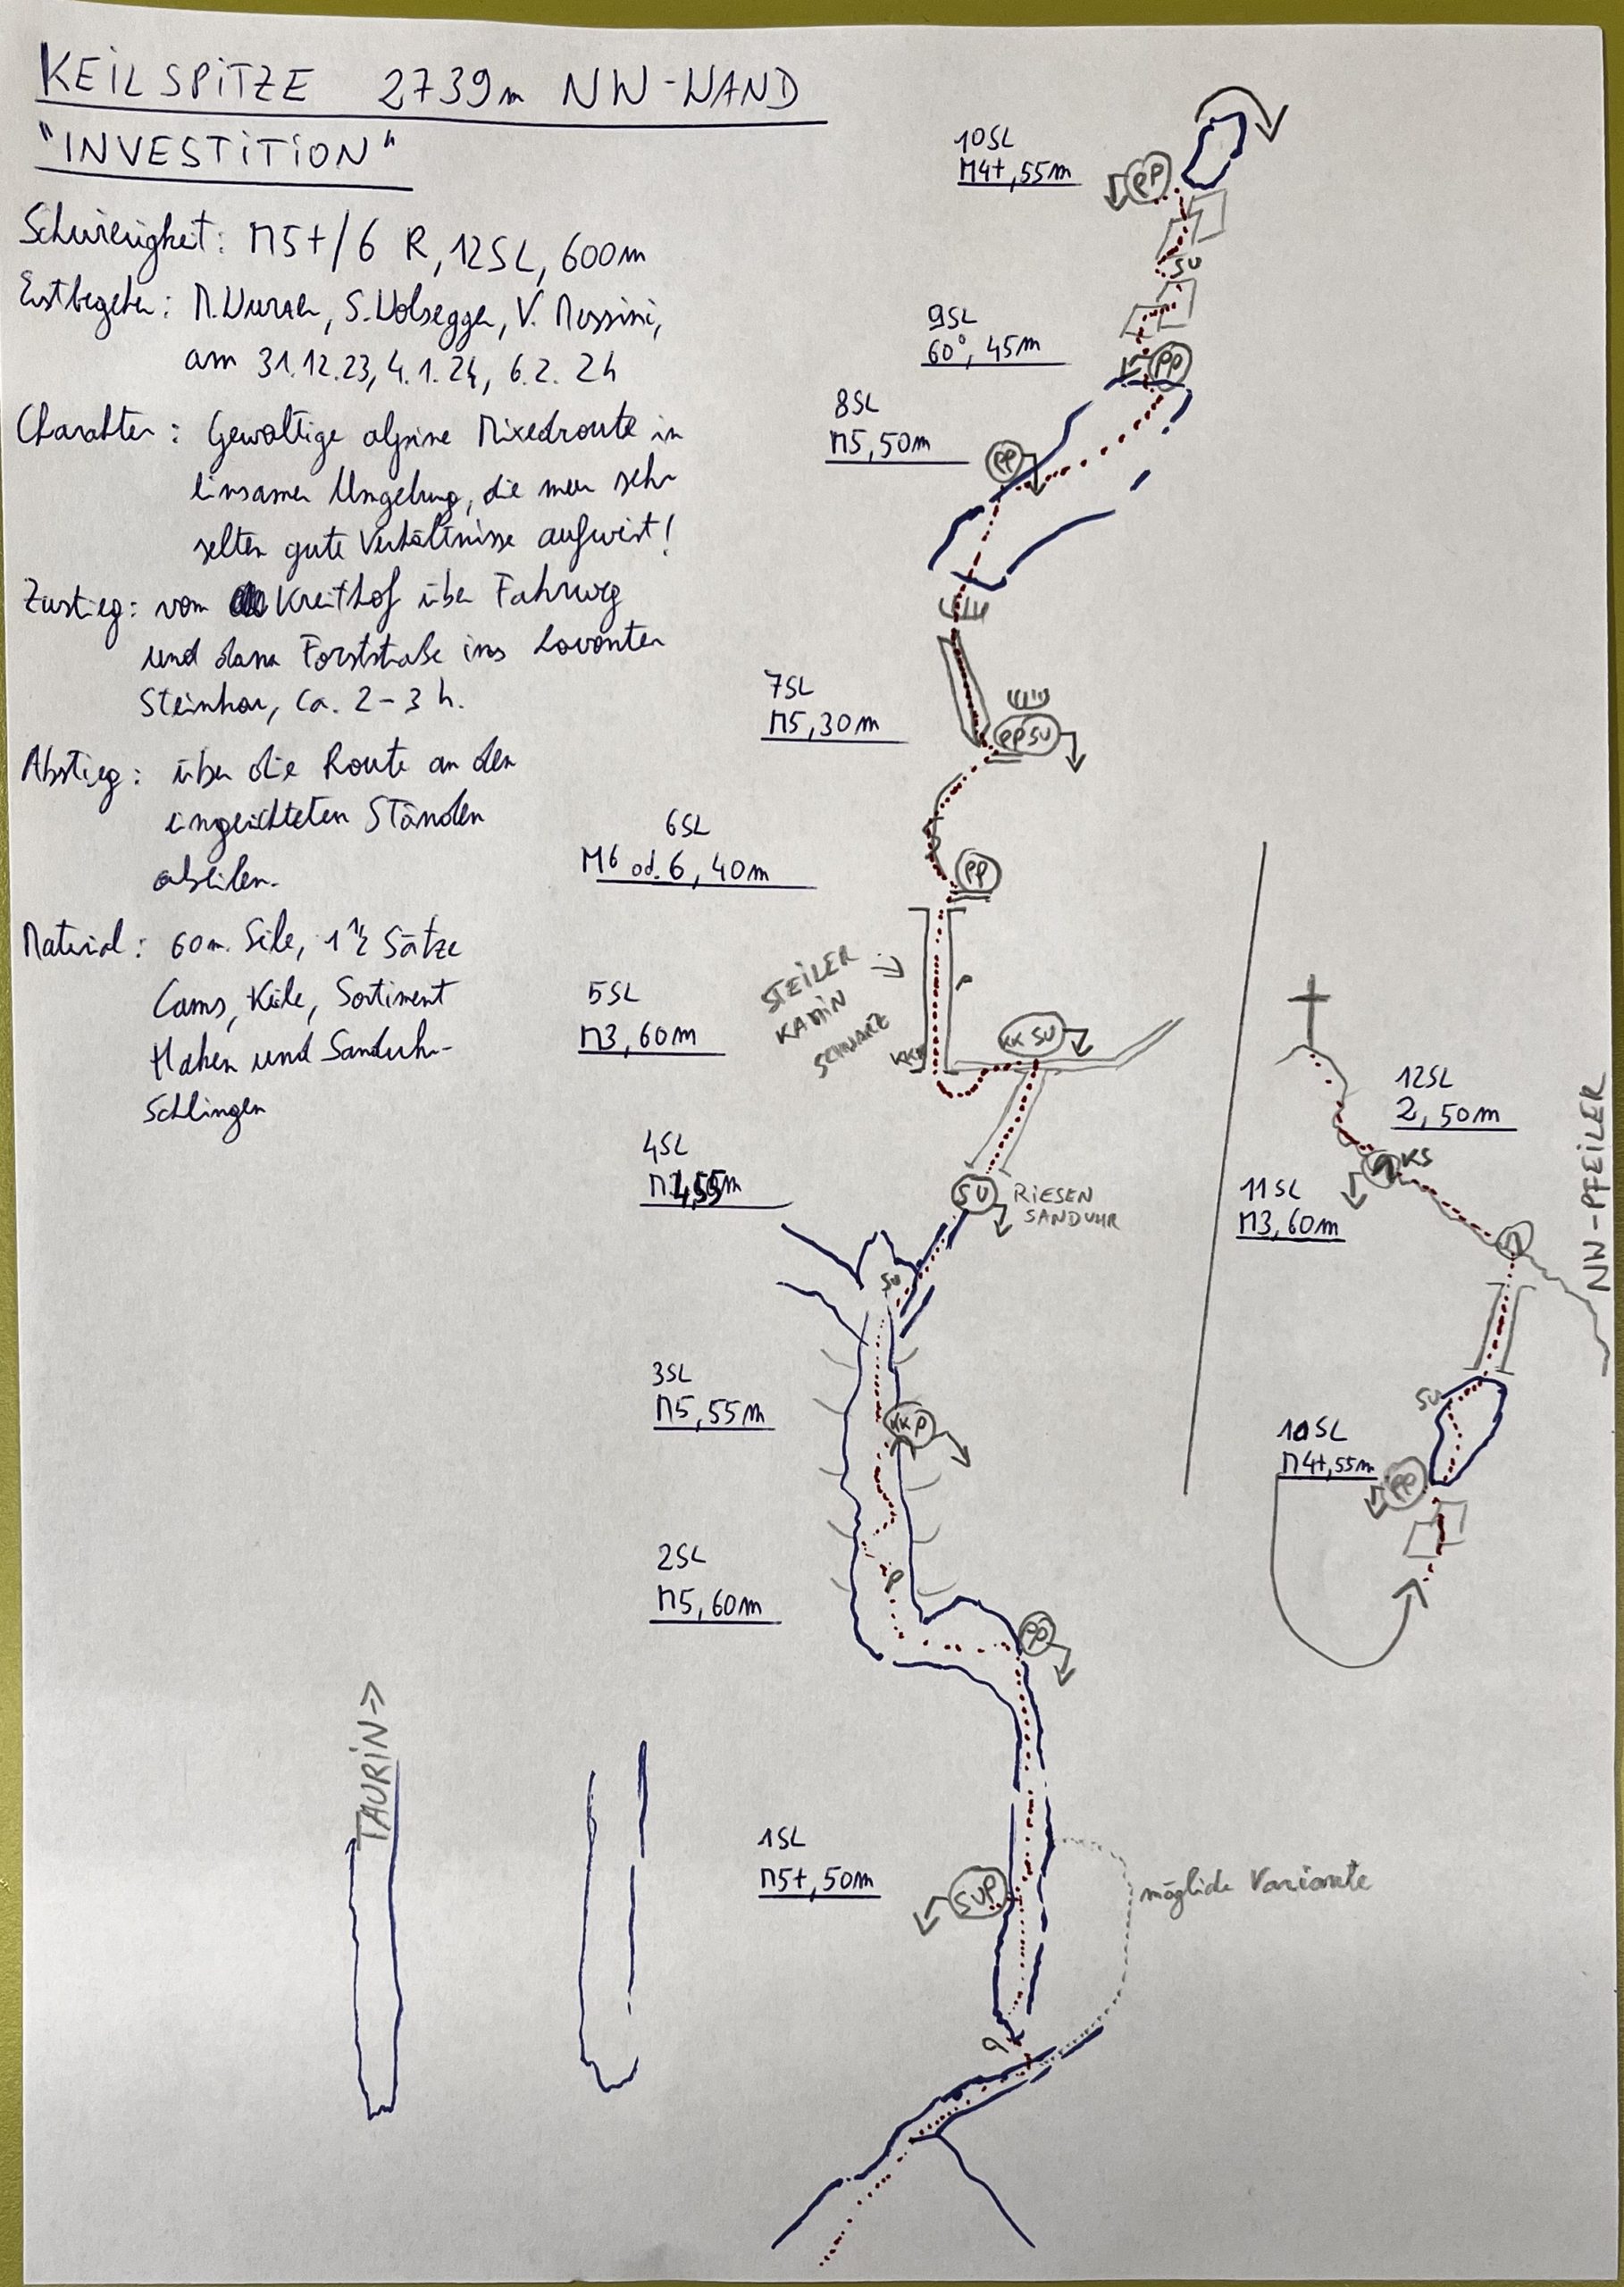 KEILSPITZE 2739m NW-WAND
"INVESTITION"
Schwierigkeit: M5+/6 R, 12SL, 600m
Erstbegeher: M. Wurzer, S. Wolsegger, V. Messini,
am 31.12.23, 4.1.24, 6.2.24
Charakter: Gewaltige alpine Mixedroute in
einsamer Umgebung, die nur sehr
selten gute Verhältnisse aufweist!
Zustieg: vom Kreithof über Fahrweg
und dann Forststraße ins Lavanter
Steinkar, ca. 2-3 h.
Abstieg: über die Route an den
eingerichteten Ständen
abseilen.
Material: 60m Seile, 1 1/2 Sätze
Cams, Keile, Sortiment
Haken und Sanduhr-
Schlingen
10SL
M4+, 55m
PP
SU
9SL
60°, 45m
PP
8SL
M5, 50m
PP
7SL
M5, 30m
PPSU
6SL
M6 od. 6, 40m
PP
STEILER
KAMIN
SCHWARZ
P
5SL
M3, 60m
KK SU
4SL
SU
RIESEN
SANDUHR
SU
3SL
M5, 55m
KKP
2SL
M5, 60m
P
PP
TAURIN
1SL
M5+, 50m
SUP
mögliche Variante
12SL
2, 50m
KS
NW-PFEILER
11SL
M3, 60m
SU
10SL
M4+, 55m
PP